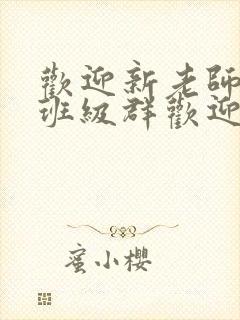 歡迎新老師
班級群歡迎
蜜小櫻